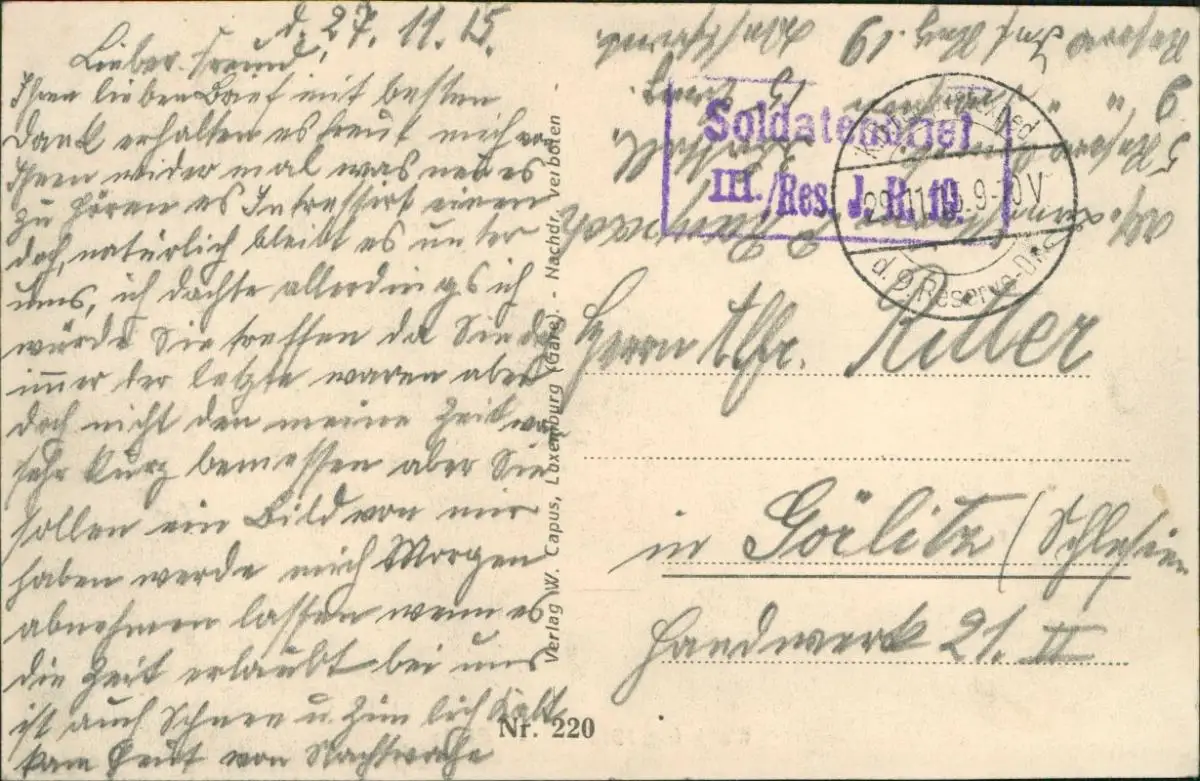 d. 27. 11. 15.
Lieber Freund!
Ihren lieben Brief mit besten
Dank erhalten es freut mich von
Ihnen wider mal was neues
zu hören es Intressirt einen
doch, natürlich bleibt es unter
uns, ich dachte allerdings ich
würde Sie treffen da Sie doch
immer der letzte waren aber
doch nicht den meine Zeit war
sehr kurz bemessen aber Sie
sollen ein Bild von mir
haben werde mich Morgen
abnehmen lassen wenn es
die Zeit erlaubt bei uns
ist auch Schnee u. Zimlich Kalt
kam heut von Nachtwache
Verlag W. Capus, Luxemburg (Gare). - Nachdr. verboten
Nr. 220
Soldatenbrief
III./Res. J. R. 19.
29.11.15. 9-10 V
d. 9. Reserve-Div.
Herrn Alfr. Ritter
in Görlitz (Schlesien
Handwerk 21. II
Abs.
5
9 " "
Reserve Inf. Reg. 19